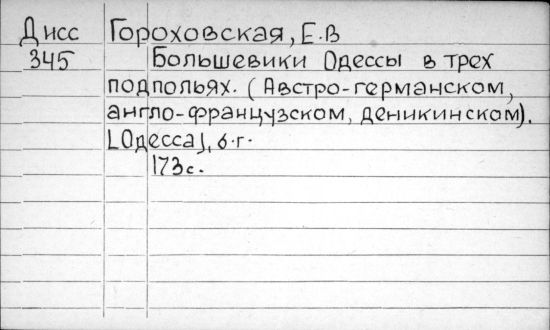 Дисс Гороховская, Е.В
345 Большевики Одессы в трех
подпольях. (Австро-германском,
англо-французском, деникинском).
[Одесса], б.г.
173с.